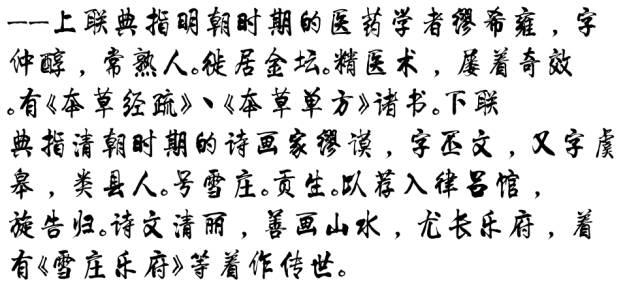 ——上联典指明朝时期的医药学者缪希雍，字
仲醇，常熟人。徙居金坛。精医术，屡着奇效
。有《本草经疏》、《本草单方》诸书。下联
典指清朝时期的诗画家缪谟，字丕文，又字虞
皋，娄县人。号雪庄。贡生。以荐入律吕馆，
旋告归。诗文清丽，善画山水，尤长乐府，着
有《雪庄乐府》等着作传世。